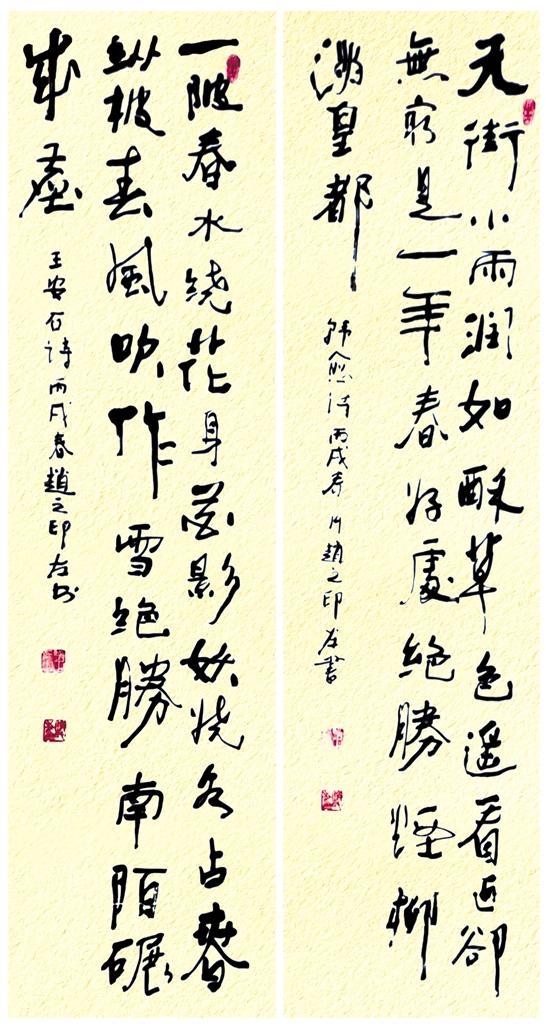 天街小雨润如酥草色遥看近卻
無最是一年春好處絕勝煙柳
滿皇都
韩愈诗丙戌春月趙之印左書
一陂春水绕花身花影妖娆各占春
纵被春風吹作雪絕勝南陌碾
成塵
王安石诗丙戌春趙之印左书